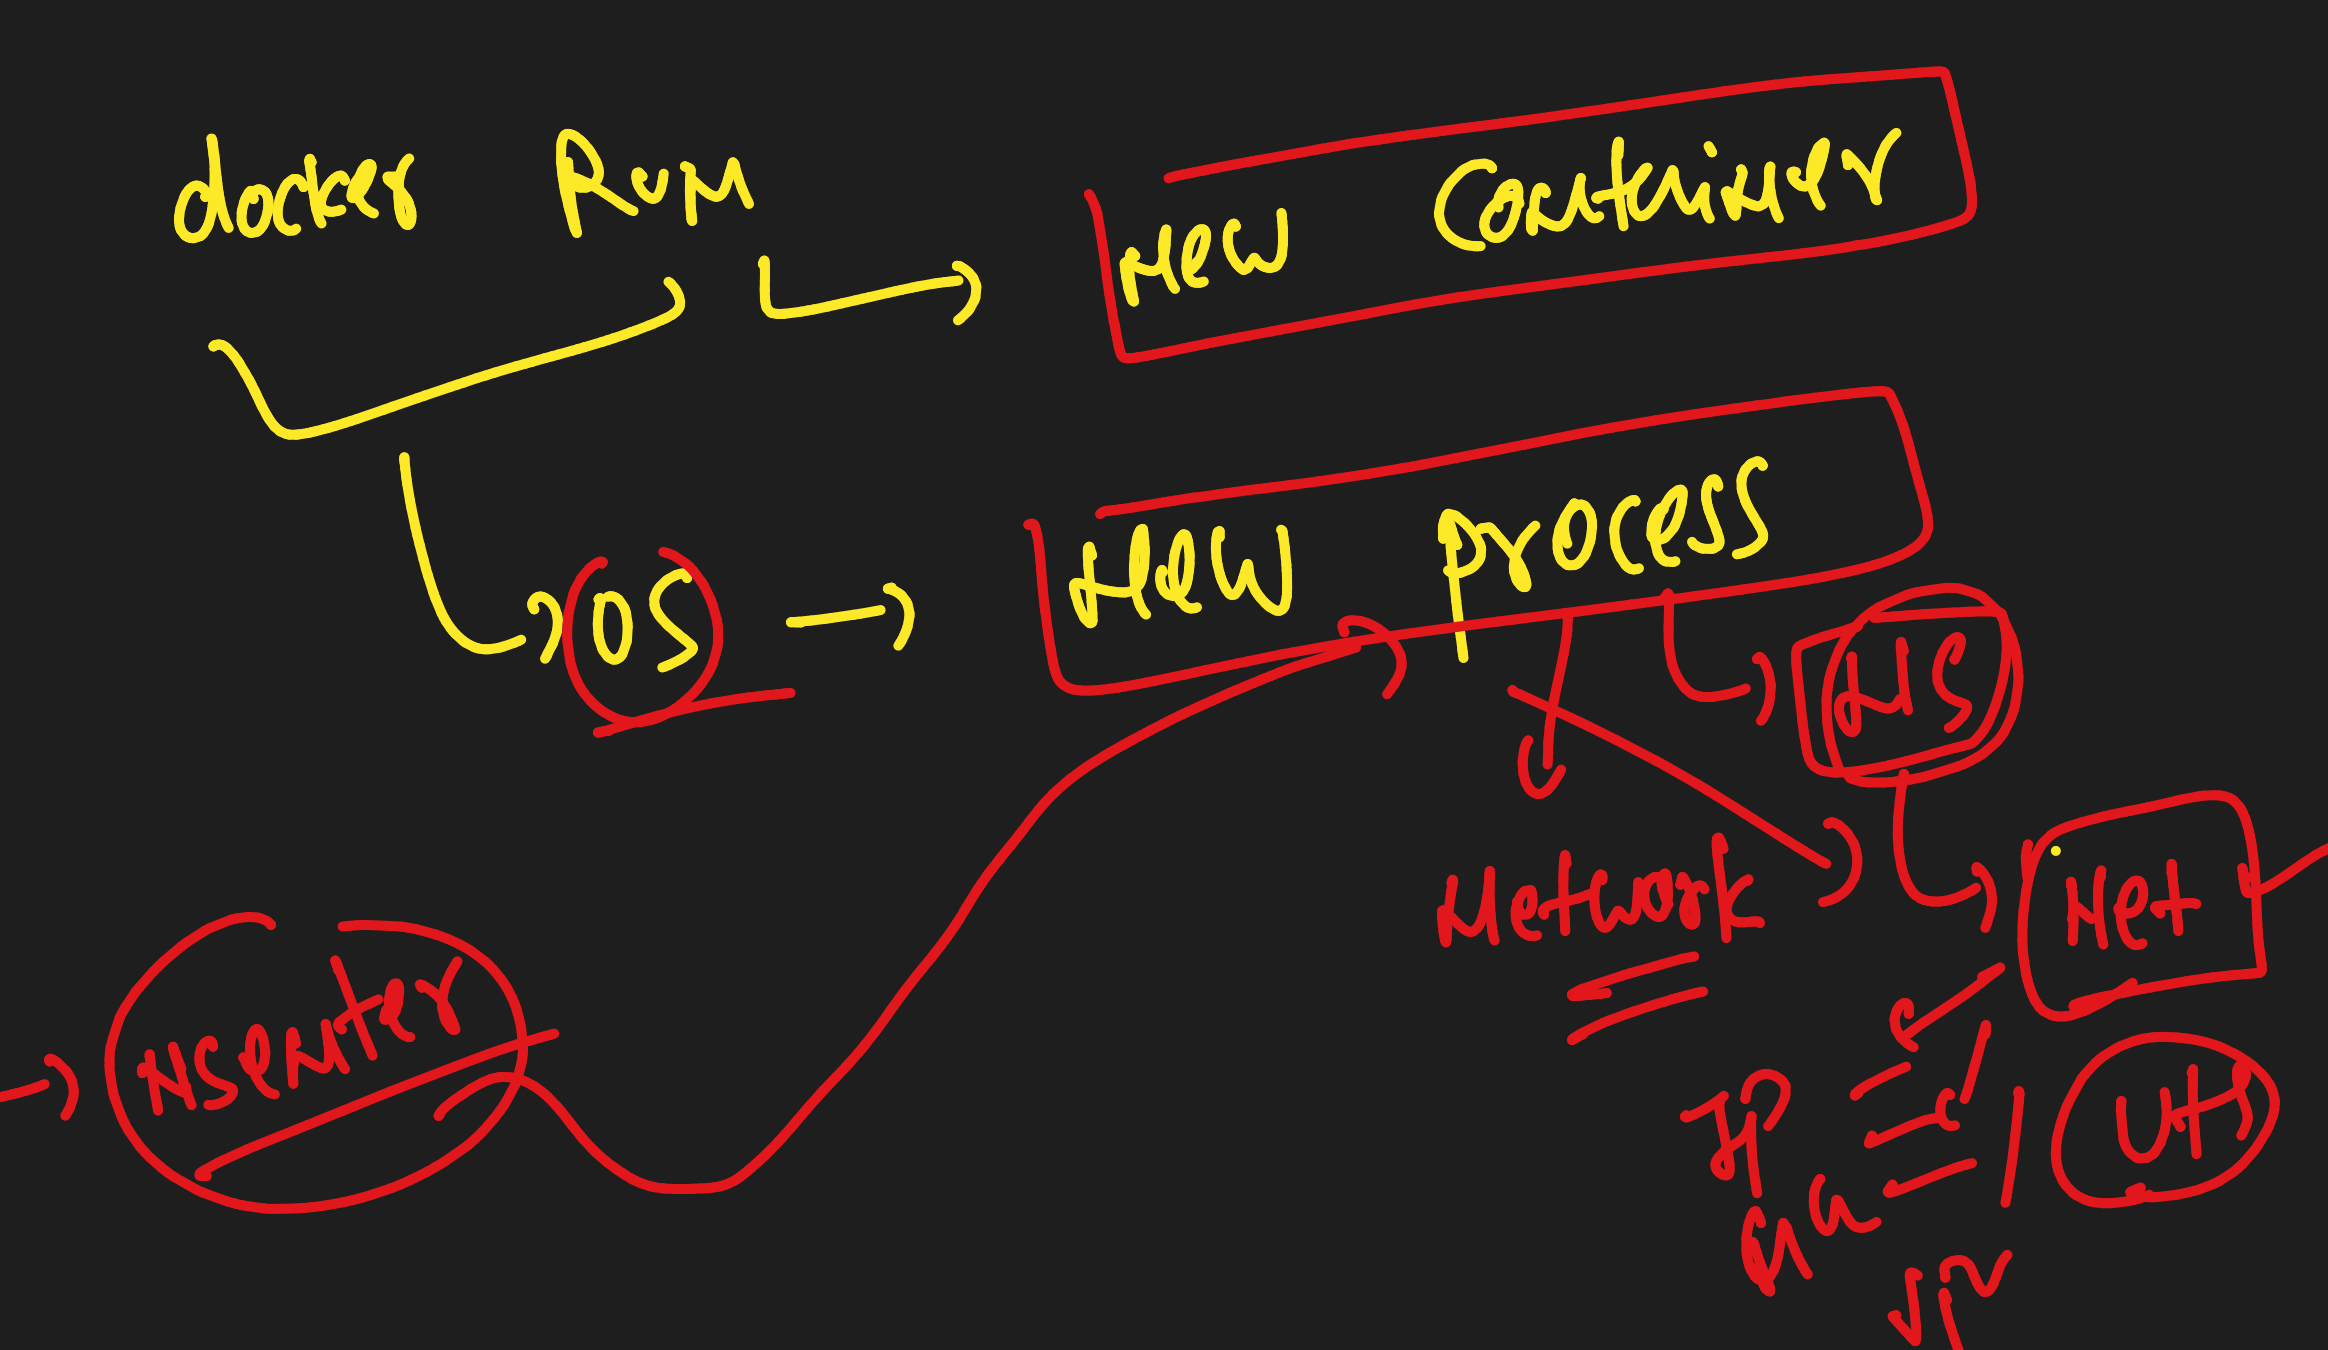 docker Run
New Container
OS
New process
NS
Network
Net
nsenter
UTS
IP